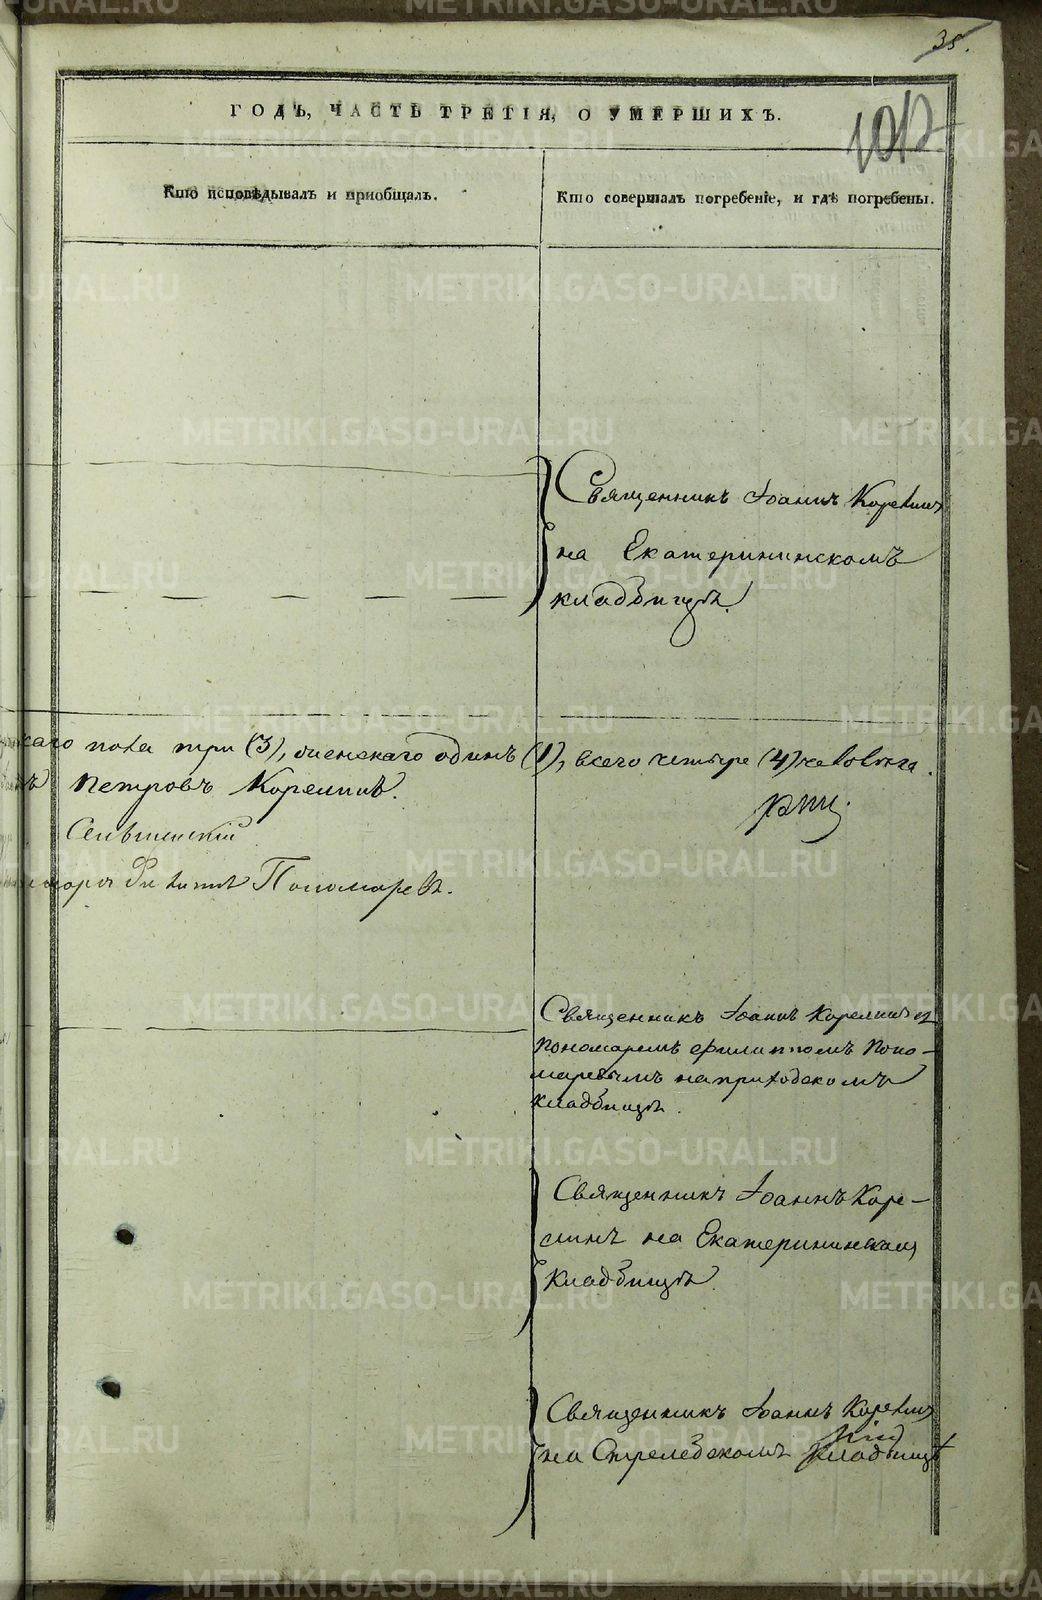 METRIKI.GASO-URAL.RU
35.
ГОДЪ, ЧАСТЬ ТРЕТІЯ, О УМЕРШИХЪ.
1012
Кто исповѣдывалъ и пріобщалъ.
Кто совершалъ погребеніе, и гдѣ погребены.
Священникъ Іоаннъ Корелинъ
на Екатерининскомъ
кладбищѣ.
каго пола три (3), женскаго одинъ (1), всего четыре (4) человѣка.
ъ Петровъ Корелинъ.
Селъменскій
Филиппъ Пономаревъ.
Священникъ Іоаннъ Корелинъ съ
Пономаремъ Филиппомъ Поно-
маревымъ на приходскомъ
кладбищѣ.
Священникъ Іоаннъ Коре-
линъ на Екатерининскомъ
кладбищѣ.
Священникъ Іоаннъ Корелинъ
на кладбищѣ